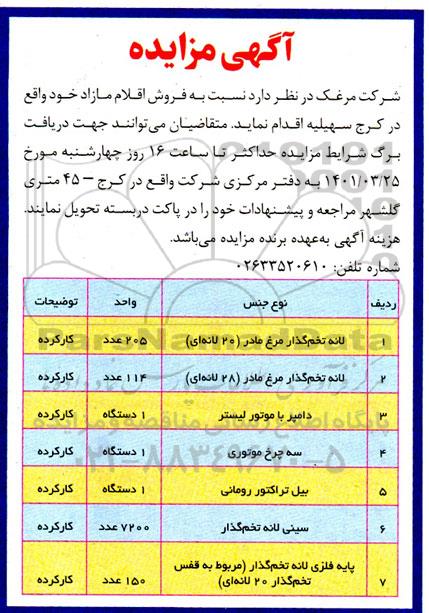 آگهی مزایده
شرکت مرغک در نظر دارد نسبت به فروش اقلام مازاد خود واقع
در کرج سهیلیه اقدام نماید. متقاضیان می‌توانند جهت دریافت
برگ شرایط مزایده حداکثر تا ساعت ۱۶ روز چهارشنبه مورخ
۱۴۰۱/۰۳/۲۵ به دفتر مرکزی شرکت واقع در کرج – ۴۵ متری
گلشهر مراجعه و پیشنهادات خود را در پاکت دربسته تحویل نمایند.
هزینه آگهی به‌عهده برنده مزایده می‌باشد.
شماره تلفن: ۰۲۶۳۳۵۲۰۶۱۰
ردیف نوع جنس واحد توضیحات
۱ لانه تخم‌گذار مرغ مادر (۲۰ لانه‌ای) ۲۰۵ عدد کارکرده
۲ لانه تخم‌گذار مرغ مادر (۲۸ لانه‌ای) ۱۱۴ عدد کارکرده
۳ دامپر با موتور لیستر ۱ دستگاه کارکرده
۴ سه چرخ موتوری ۱ دستگاه کارکرده
۵ بیل تراکتور رومانی ۱ دستگاه کارکرده
۶ سینی لانه تخم‌گذار ۷۲۰۰ عدد کارکرده
۷ پایه فلزی لانه تخم‌گذار (مربوط به قفس
تخم‌گذار ۲۰ لانه‌ای) ۱۵۰ عدد کارکرده
ParsNamadData
پایگاه اطلاع رسانی مناقصه و مزایده
۰۲۱-۸۸۳۴۹۶۷۰-۵